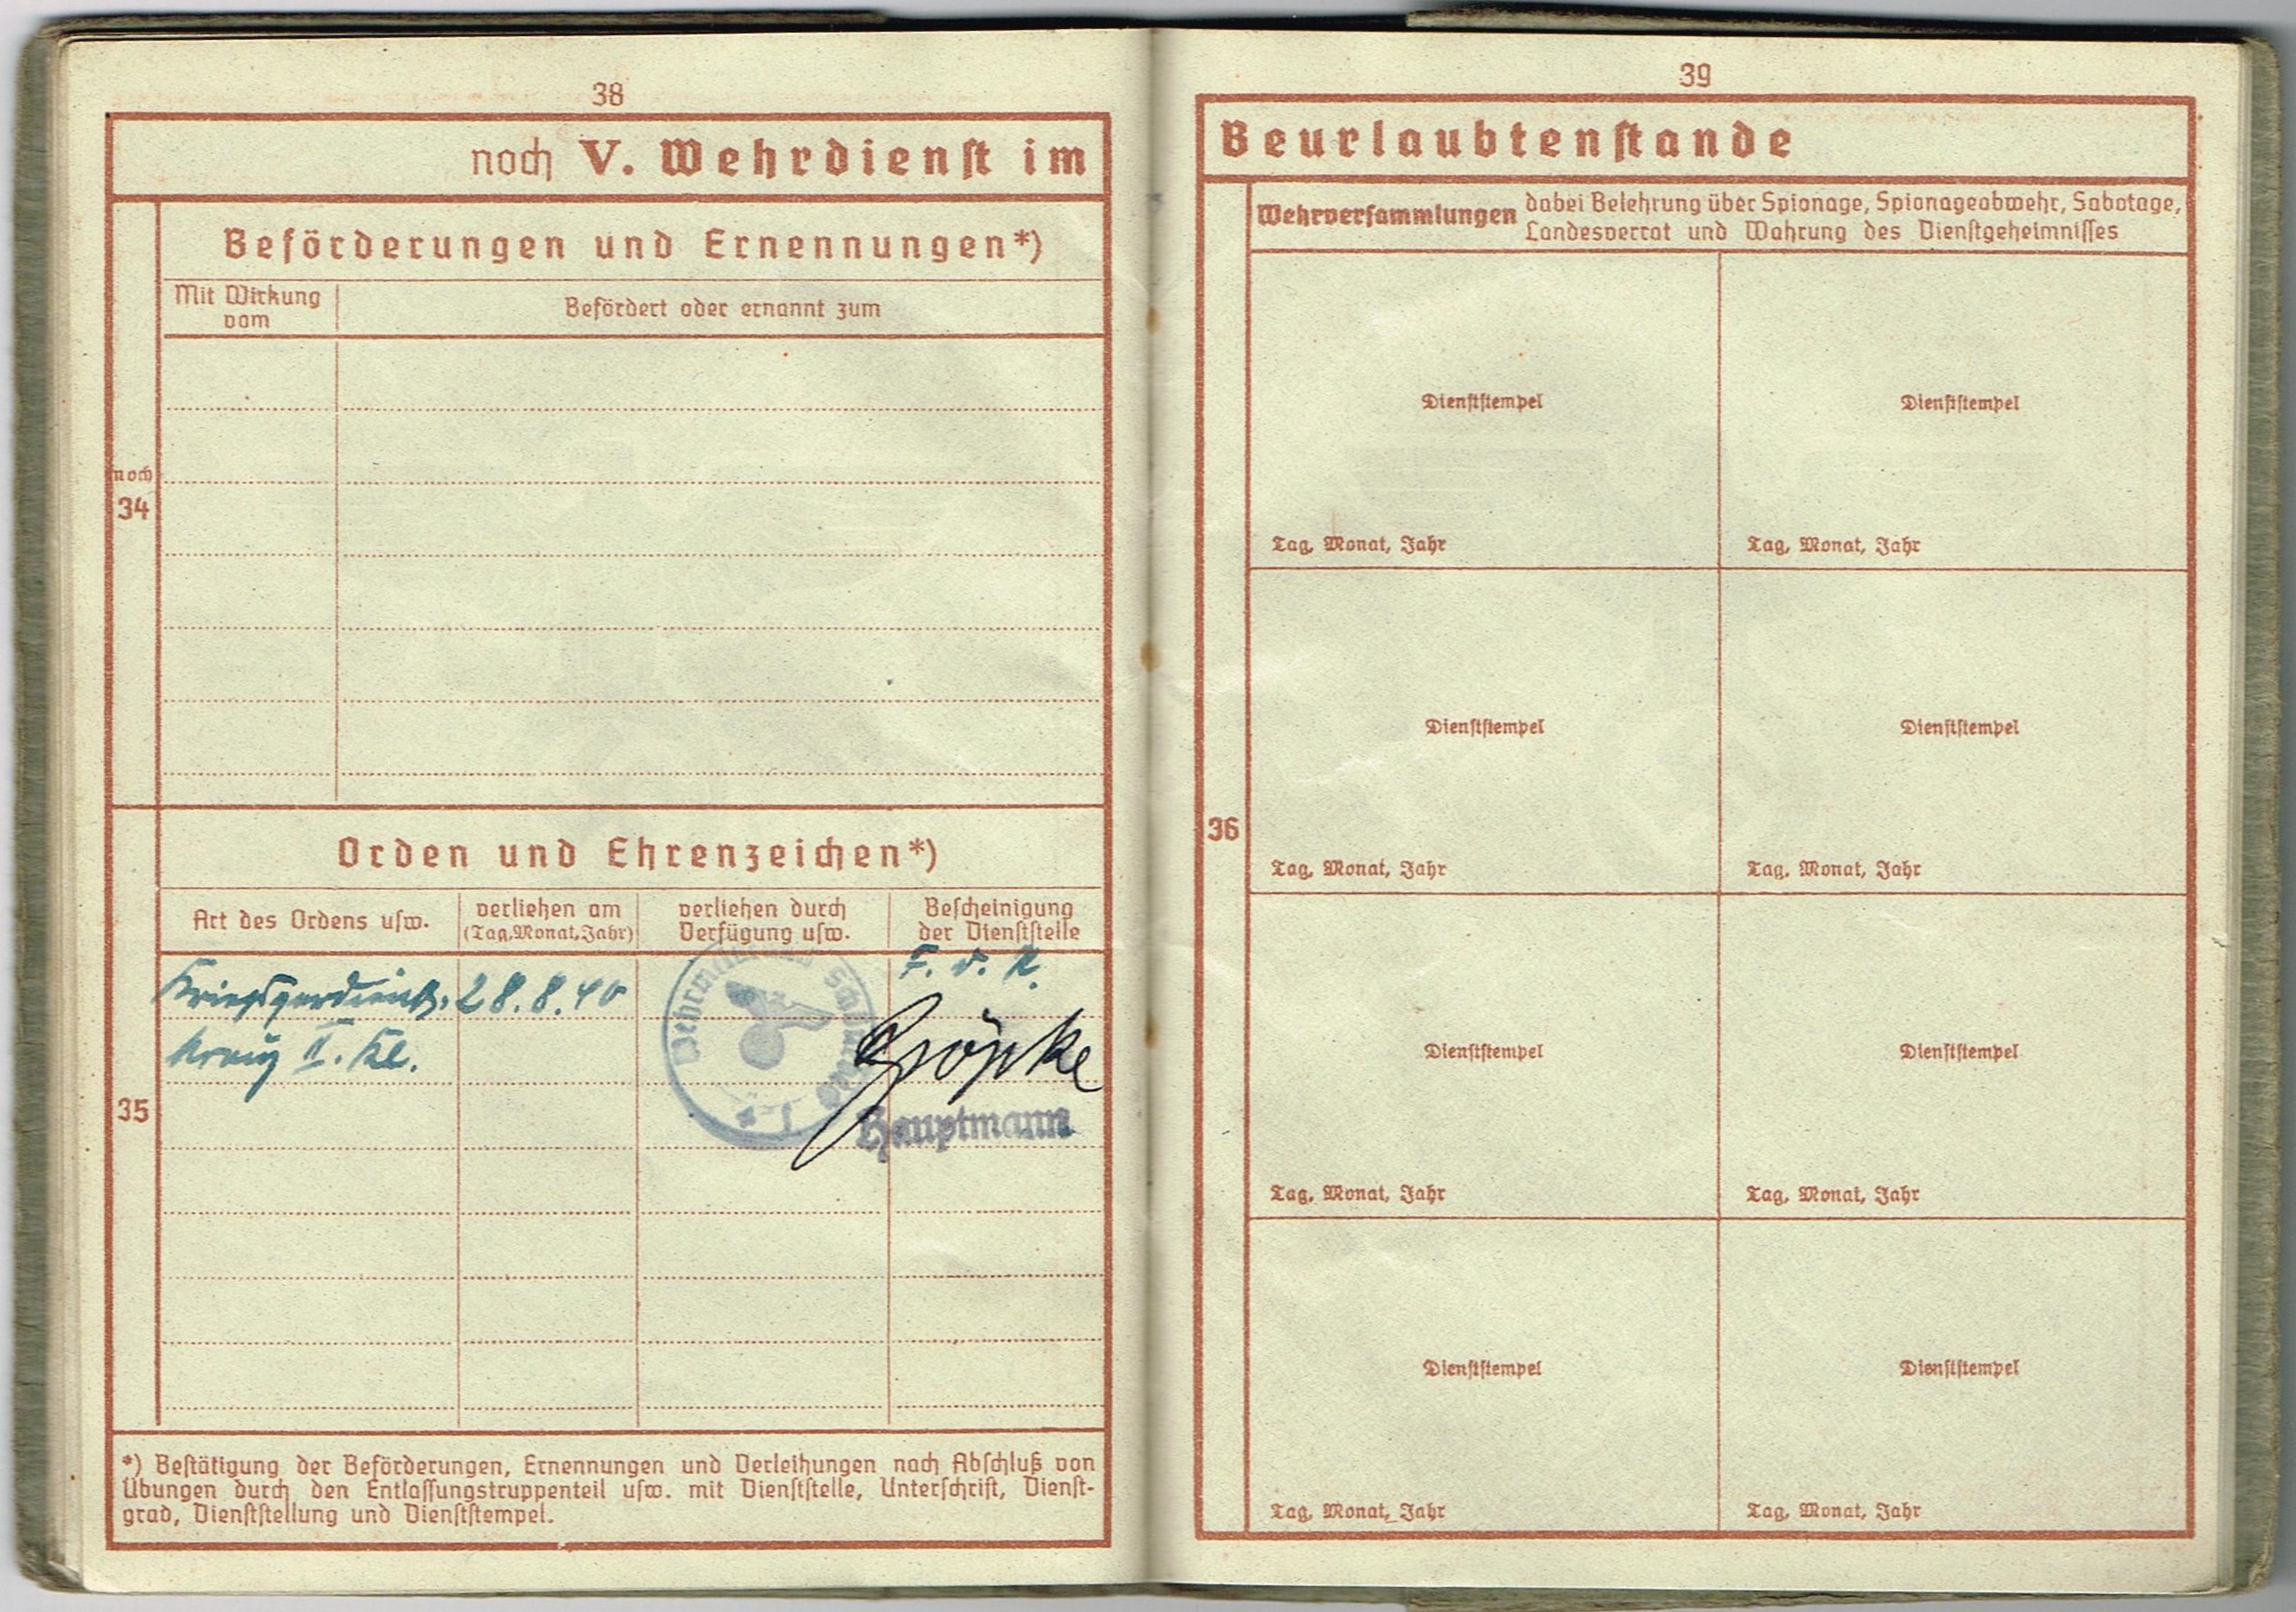 38
noch V. Wehrdienst im
Beförderungen und Ernennungen*)
Mit Wirkung
vom
Befördert oder ernannt zum
noch
34
Orden und Ehrenzeichen*)
Art des Ordens usw.
verliehen am
(Tag, Monat, Jahr)
verliehen durch
Verfügung usw.
Bescheinigung
der Dienststelle
Kriegsverdienst- 28.8.40
kreuz II. Kl.
F. d. R.
Hauptmann
35
*) Bestätigung der Beförderungen, Ernennungen und Verleihungen nach Abschluß von
Übungen durch den Entlassungstruppenteil usw. mit Dienststelle, Unterschrift, Dienst-
grad, Dienststellung und Dienststempel.
39
Beurlaubtenstande
Wehrversammlungen dabei Belehrung über Spionage, Spionageabwehr, Sabotage,
Landesverrat und Wahrung des Dienstgeheimnisses
36
Dienststempel Dienststempel
Tag, Monat, Jahr Tag, Monat, Jahr
Dienststempel Dienststempel
Tag, Monat, Jahr Tag, Monat, Jahr
Dienststempel Dienststempel
Tag, Monat, Jahr Tag, Monat, Jahr
Dienststempel Dienststempel
Tag, Monat, Jahr Tag, Monat, Jahr